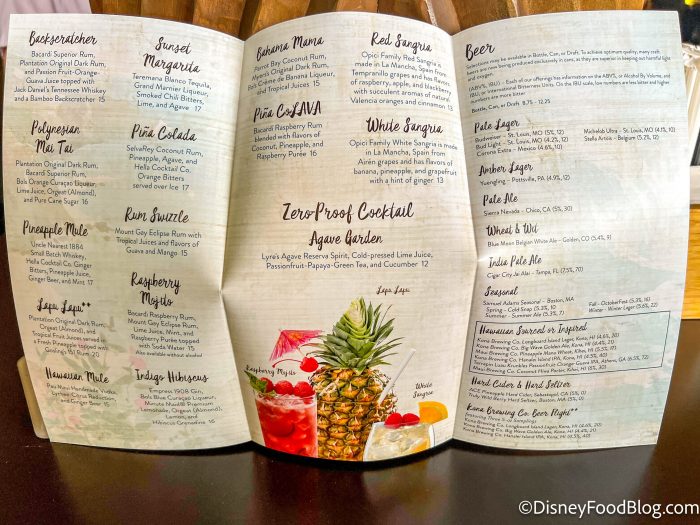 Backscratcher
Bacardi Superior Rum,
Plantation Original Dark Rum,
and Passion Fruit-Orange-
Guava Juice topped with
Jack Daniel's Tennessee Whiskey
and a Bamboo Backscratcher 15
Polynesian
Mai Tai
Plantation Original Dark Rum,
Bacardi Superior Rum,
Bols Orange Curaçao Liqueur,
Lime Juice, Orgeat (Almond),
and Pure Cane Sugar 16
Pineapple Mule
Uncle Nearest 1884
Small Batch Whiskey,
Hella Cocktail Co. Ginger
Bitters, Pineapple Juice,
Ginger Beer, and Mint 17
Lapu Lapu**
Plantation Original Dark Rum,
Orgeat (Almond), and
Tropical Fruit Juices served in
a Fresh Pineapple topped with
Gosling's 151 Rum 20
Hawaiian Mule
Pau Maui Handmade Vodka,
Lychee Citrus Reduction
and Ginger Beer 15
Sunset
Margarita
Teremana Blanco Tequila,
Grand Marnier Liqueur,
Smoked Chili Bitters,
Lime, and Agave 17
Piña Colada
SelvaRey Coconut Rum,
Pineapple, Agave, and
Hella Cocktail Co.
Orange Bitters
served over Ice 17
Rum Swizzle
Mount Gay Eclipse Rum with
Tropical Juices and flavors of
Guava and Mango 15
Raspberry
Mojito
Bacardi Raspberry Rum,
Mount Gay Eclipse Rum,
Lime Juice, Mint, and
Raspberry Purée topped
with Soda Water 15
Also available without alcohol
Indigo Hibiscus
Empress 1908 Gin,
Bols Blue Curaçao Liqueur,
Minute Maid® Premium
Lemonade, Orgeat (Almond),
Lemon, and
Hibiscus Grenadine 16
Bahama Mama
Parrot Bay Coconut Rum,
Myers's Original Dark Rum,
Bols Crème de Banana Liqueur,
and Tropical Juices 15
Piña CoLAVA
Bacardi Raspberry Rum
blended with flavors of
Coconut, Pineapple, and
Raspberry Purée 16
Red Sangria
Opici Family Red Sangria is
made in La Mancha, Spain from
Tempranillo grapes and has flavors
of raspberry, apple, and blackberry
with succulent aromas of natural
Valencia oranges and cinnamon 13
White Sangria
Opici Family White Sangria is made
in La Mancha, Spain from
Airén grapes and has flavors of
banana, pineapple, and grapefruit
with a hint of ginger 13
Zero Proof Cocktail
Agave Garden
Lyre's Agave Reserva Spirit, Cold-pressed Lime Juice,
Passionfruit-Papaya-Green Tea, and Cucumber 12
Lapu Lapu
Raspberry Mojito
White
Sangria
Beer
Selections may be available in Bottle, Can, or Draft. To achieve optimum quality, many craft
beers are now being produced exclusively in cans, as they are superior in keeping out harmful light
and oxygen.
(ABV%, IBU) - Each of our offerings has information on the ABV%, or Alcohol By Volume, and
IBU, or International Bitterness Units. On the IBU scale, low numbers are less bitter and higher
numbers are more bitter.
Bottle, Can, or Draft 8.75 - 12.25
Pale Lager
Budweiser - St. Louis, MO (5%, 12)
Bud Light - St. Louis, MO
Corona Extra - Mexico (4.6%, 10)
Michelob Ultra - St. Louis, MO (4.1%, 10)
Stella Artois - Belgium
Amber Lager
Yuengling - Pottsville, PA (4.9%, 12)
Pale Ale
Sierra Nevada - Chico, CA (5%, 30)
Wheat & Wit
Blue Moon Belgian White Ale - Golden, CO (5.4%, 9)
India Pale Ale
Cigar City Jai Alai - Tampa, FL (7.5%, 70)
Seasonal
Samuel Adams Seasonal - Boston, MA
Spring - Cold Snap
Summer - Summer Ale
Fall - OctoberFest
Winter - Winter Lager
Hawaiian Sourced or Inspired
Kona Brewing Co. Longboard Island Lager, Kona, HI
Kona Brewing Co. Big Wave Golden Ale, Kona, HI
Maui Brewing Co. Pineapple Mana Wheat, Kihei, HI
Kona Brewing Co. Hanalei Island IPA, Kona, HI
Hard Cider & Hard Seltzer
ACE Pineapple Hard Cider, Sebastopol, CA (5%, 0)
Truly Wild Berry Hard Seltzer, Boston, MA
Kona Brewing Co. Beer Flight**
Kona Brewing Co. Longboard Island Lager, Kona, HI
Kona Brewing Co. Big Wave Golden Ale, Kona, HI
Kona Brewing Co. Hanalei Island IPA, Kona, HI
©DisneyFoodBlog.com